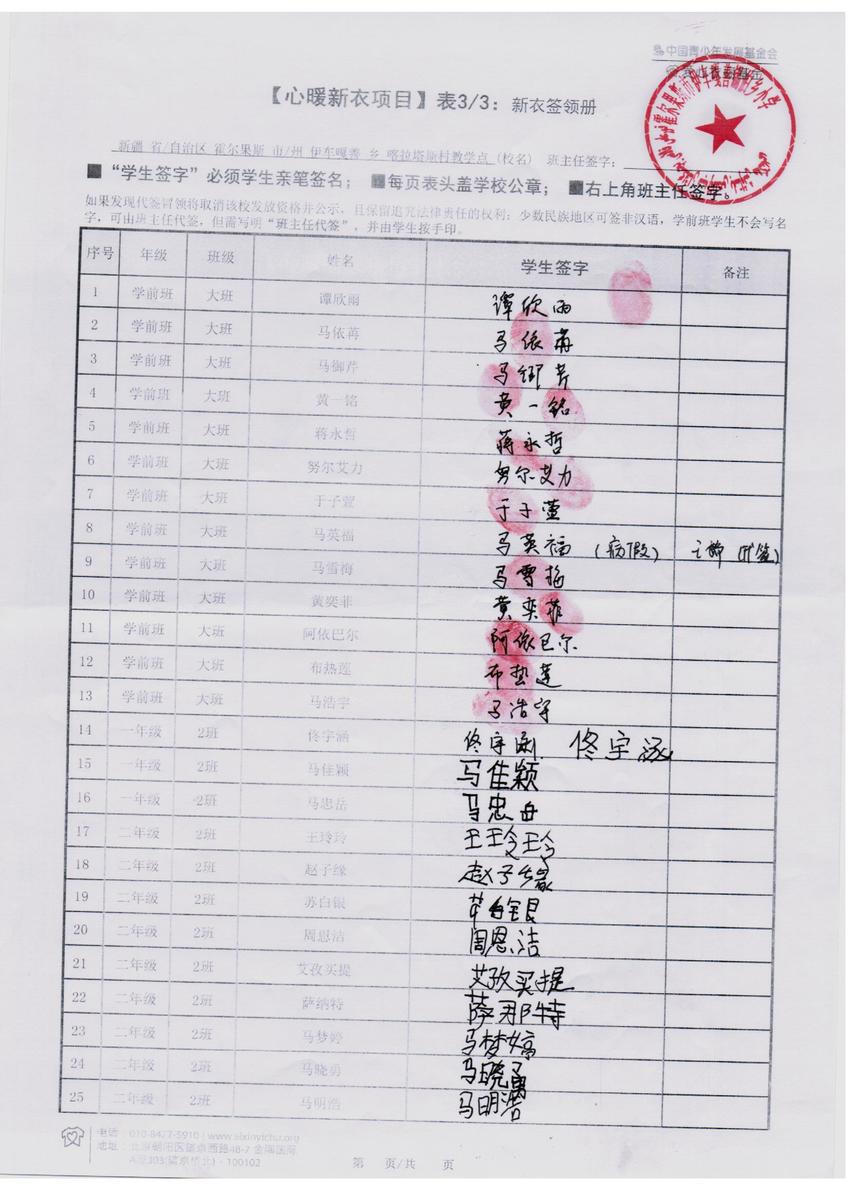 中国青少年发展基金会
【心暖新衣项目】表3/3：新衣签领册
新疆 省/自治区 霍尔果斯 市/州 伊车嘎善 乡 喀拉塔斯村教学点（校名） 班主任签字：
■“学生签字”必须学生亲笔签名； ■每页表头盖学校公章； ■右上角班主任签字。
如果发现代签冒领将取消该校发放资格并公示，且保留追究法律责任的权利；少数民族地区可签非汉语，学前班学生不会写名
字，可由班主任代签，但需写明“班主任代签”，并由学生按手印。
序号 年级 班级 姓名 学生签字 备注
1 学前班 大班 谭欣雨 谭欣雨
2 学前班 大班 马依苒 马依苒
3 学前班 大班 马御芹 马御芹
4 学前班 大班 黄一铭 黄一铭
5 学前班 大班 蒋永哲 蒋永哲
6 学前班 大班 努尔艾力 努尔艾力
7 学前班 大班 于子萱 于子萱
8 学前班 大班 马英福 马英福 （病假） （代签）
9 学前班 大班 马雪梅 马雪梅
10 学前班 大班 黄奕菲 黄奕菲
11 学前班 大班 阿依巴尔 阿依巴尔
12 学前班 大班 布热莲 布热莲
13 学前班 大班 马浩宇 马浩宇
14 一年级 2班 佟宇涵 佟宇涵 佟宇涵
15 一年级 2班 马佳颖 马佳颖
16 一年级 2班 马忠岳 马忠
17 二年级 2班 王玲玲 王玲玲
18 二年级 2班 赵子缘 赵子缘
19 二年级 2班 苏白银 白银
20 二年级 2班 周恩洁 周恩洁
21 二年级 2班 艾孜买提 艾孜买提
22 二年级 2班 萨纳特 萨那特
23 二年级 2班 马梦婷 马梦婷
24 二年级 2班 马晓勇 马晓勇
25 二年级 2班 马明浩 马明浩
电话：010-8477-5910 | www.sixinyichu.org
地址：北京朝阳区望京西路48-7 金隅国际
A座303(望京桥北)·100102
第 页/共 页